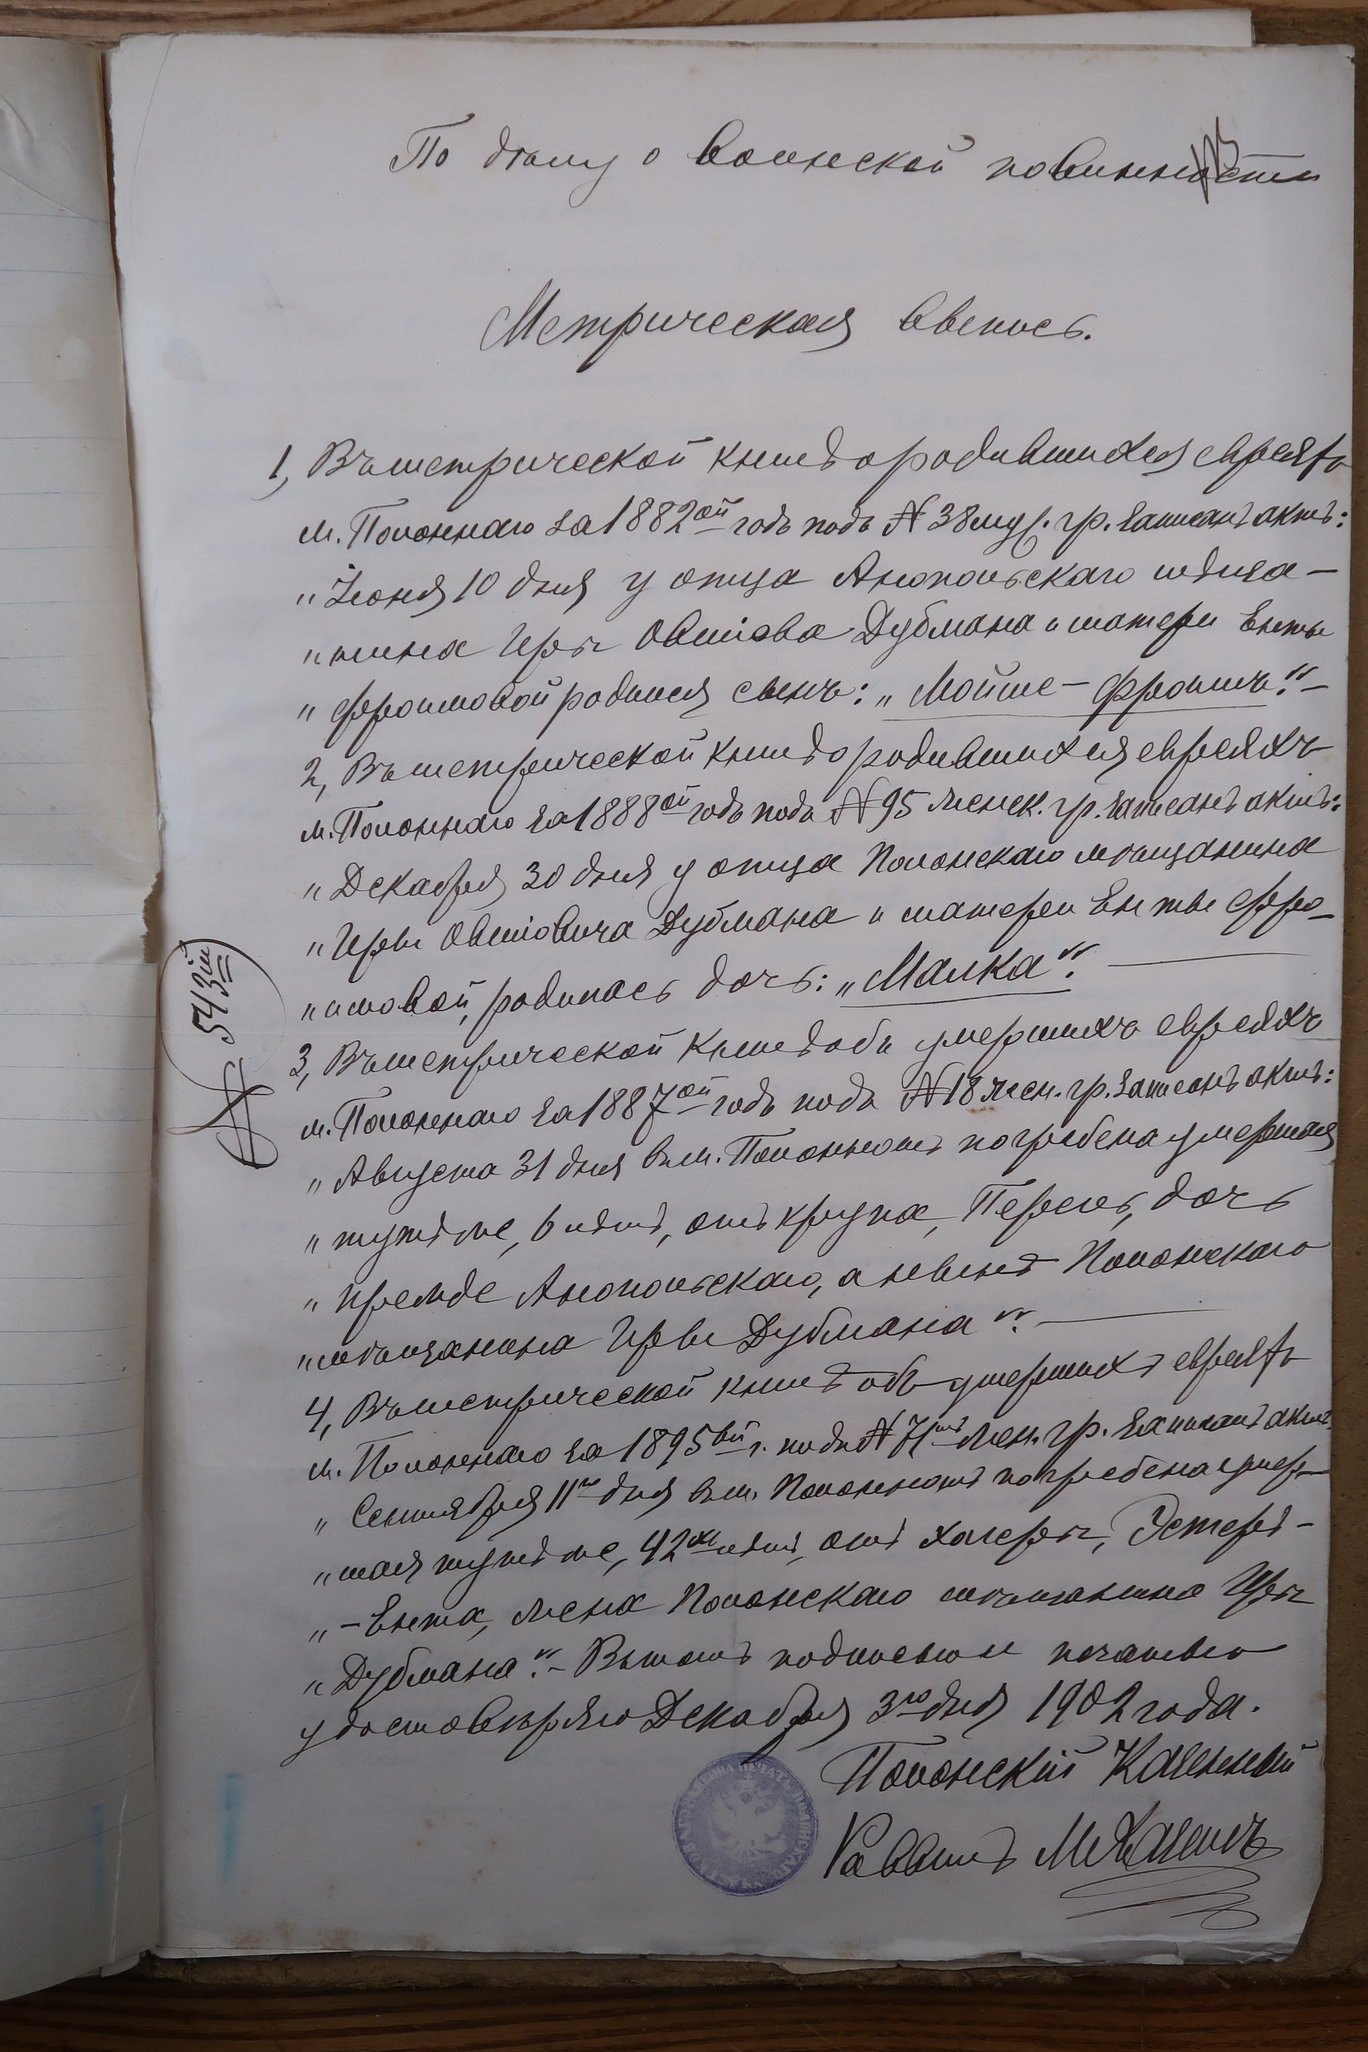 По дѣлу о воинской повинности
Метрическая выпись.
1, Въ метрической книгѣ о родившихся евреяхъ
м. Полоннаго за 1882ой годъ подъ № 38 муж. гр. записанъ актъ:
„Іюня 10 дня у отца Аннопольскаго мѣща-
„нина Иры Овшіова Дубмана и матери Енты
„Фроимовой родился сынъ: „Мойше-Фроимъ".-
2, Въ метрической книгѣ о родившихся евреяхъ
м. Полоннаго за 1888ой годъ подъ № 95 женск. гр. записанъ актъ:
„Декабря 30 дня у отца Полонскаго мѣщанина
„Иры Овшіовича Дубмана и матери Енты Фро-
„имовой, родилась дочь: „Малка".
3, Въ метрической книгѣ объ умершихъ евреяхъ
м. Полоннаго за 1887ой годъ подъ № 18 жен. гр. записанъ актъ:
„Августа 31 дня въ м. Полонномъ погребена умершая
„тутъ же, 6 лѣтъ, отъ крупа, Перель, дочь
„прежде Аннопольскаго, а нынѣ Полонскаго
„мѣщанина Иры Дубмана".
4, Въ метрической книгѣ объ умершихъ евреяхъ
м. Полоннаго за 1895ый г. подъ № жен. гр. записанъ актъ:
„Сентября 11го дня въ м. Полонномъ погребена умер-
„шая тутъ же, 42хъ лѣтъ, отъ холеры, Эстеръ-
„-Ента, жена Полонскаго мѣщанина Иры
„Дубмана".- Въ томъ подписью и печатью
удостовѣряю Декабря 3го дня 1902 года.
Полонскій Казенный
Раввинъ
№ 543